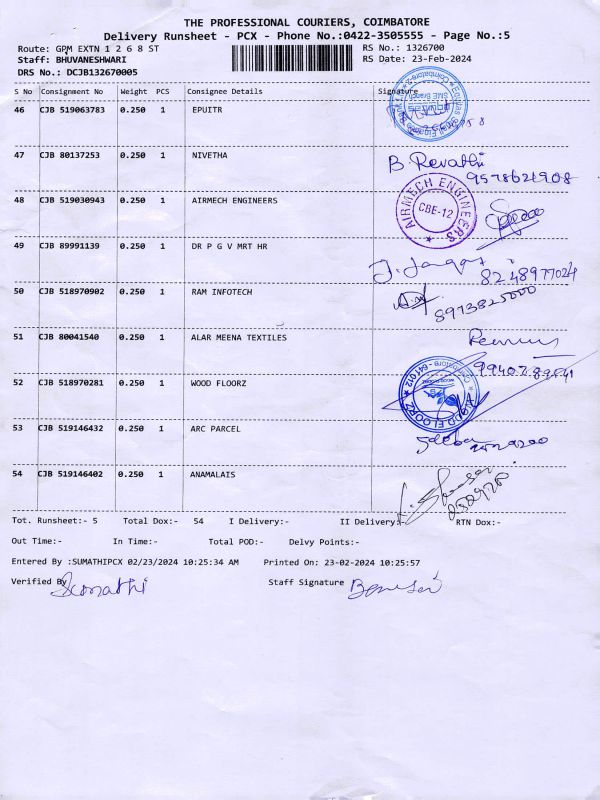 THE PROFESSIONAL COURIERS, COIMBATORE
Delivery Runsheet - PCX - Phone No.:0422-3505555 - Page No.:5
Route: GPM EXTN 1 2 6 8 ST RS No.: 1326700
Staff: BHUVANESHWARI RS Date: 23-Feb-2024
DRS No.: DCJB132670005
S No Consignment No Weight PCS Consignee Details Signature
46 CJB 519063783 0.250 1 EPUITR
47 CJB 80137253 0.250 1 NIVETHA B. Revathi
9578621908
48 CJB 519030943 0.250 1 AIRMECH ENGINEERS AIRMECH ENGINEERS CBE-12
49 CJB 89991139 0.250 1 DR P G V MRT HR
8248977024
50 CJB 518970902 0.250 1 RAM INFOTECH 8973825000
51 CJB 80041540 0.250 1 ALAR MEENA TEXTILES
52 CJB 518970281 0.250 1 WOOD FLOORZ WOOD FLOORZ Coimbatore - 641 012
53 CJB 519146432 0.250 1 ARC PARCEL
54 CJB 519146402 0.250 1 ANAMALAIS
Tot. Runsheet:- 5 Total Dox:- 54 I Delivery:- II Delivery:- RTN Dox:-
Out Time:- In Time:- Total POD:- Delvy Points:-
Entered By :SUMATHIPCX 02/23/2024 10:25:34 AM Printed On: 23-02-2024 10:25:57
Verified By Sumathi Staff Signature